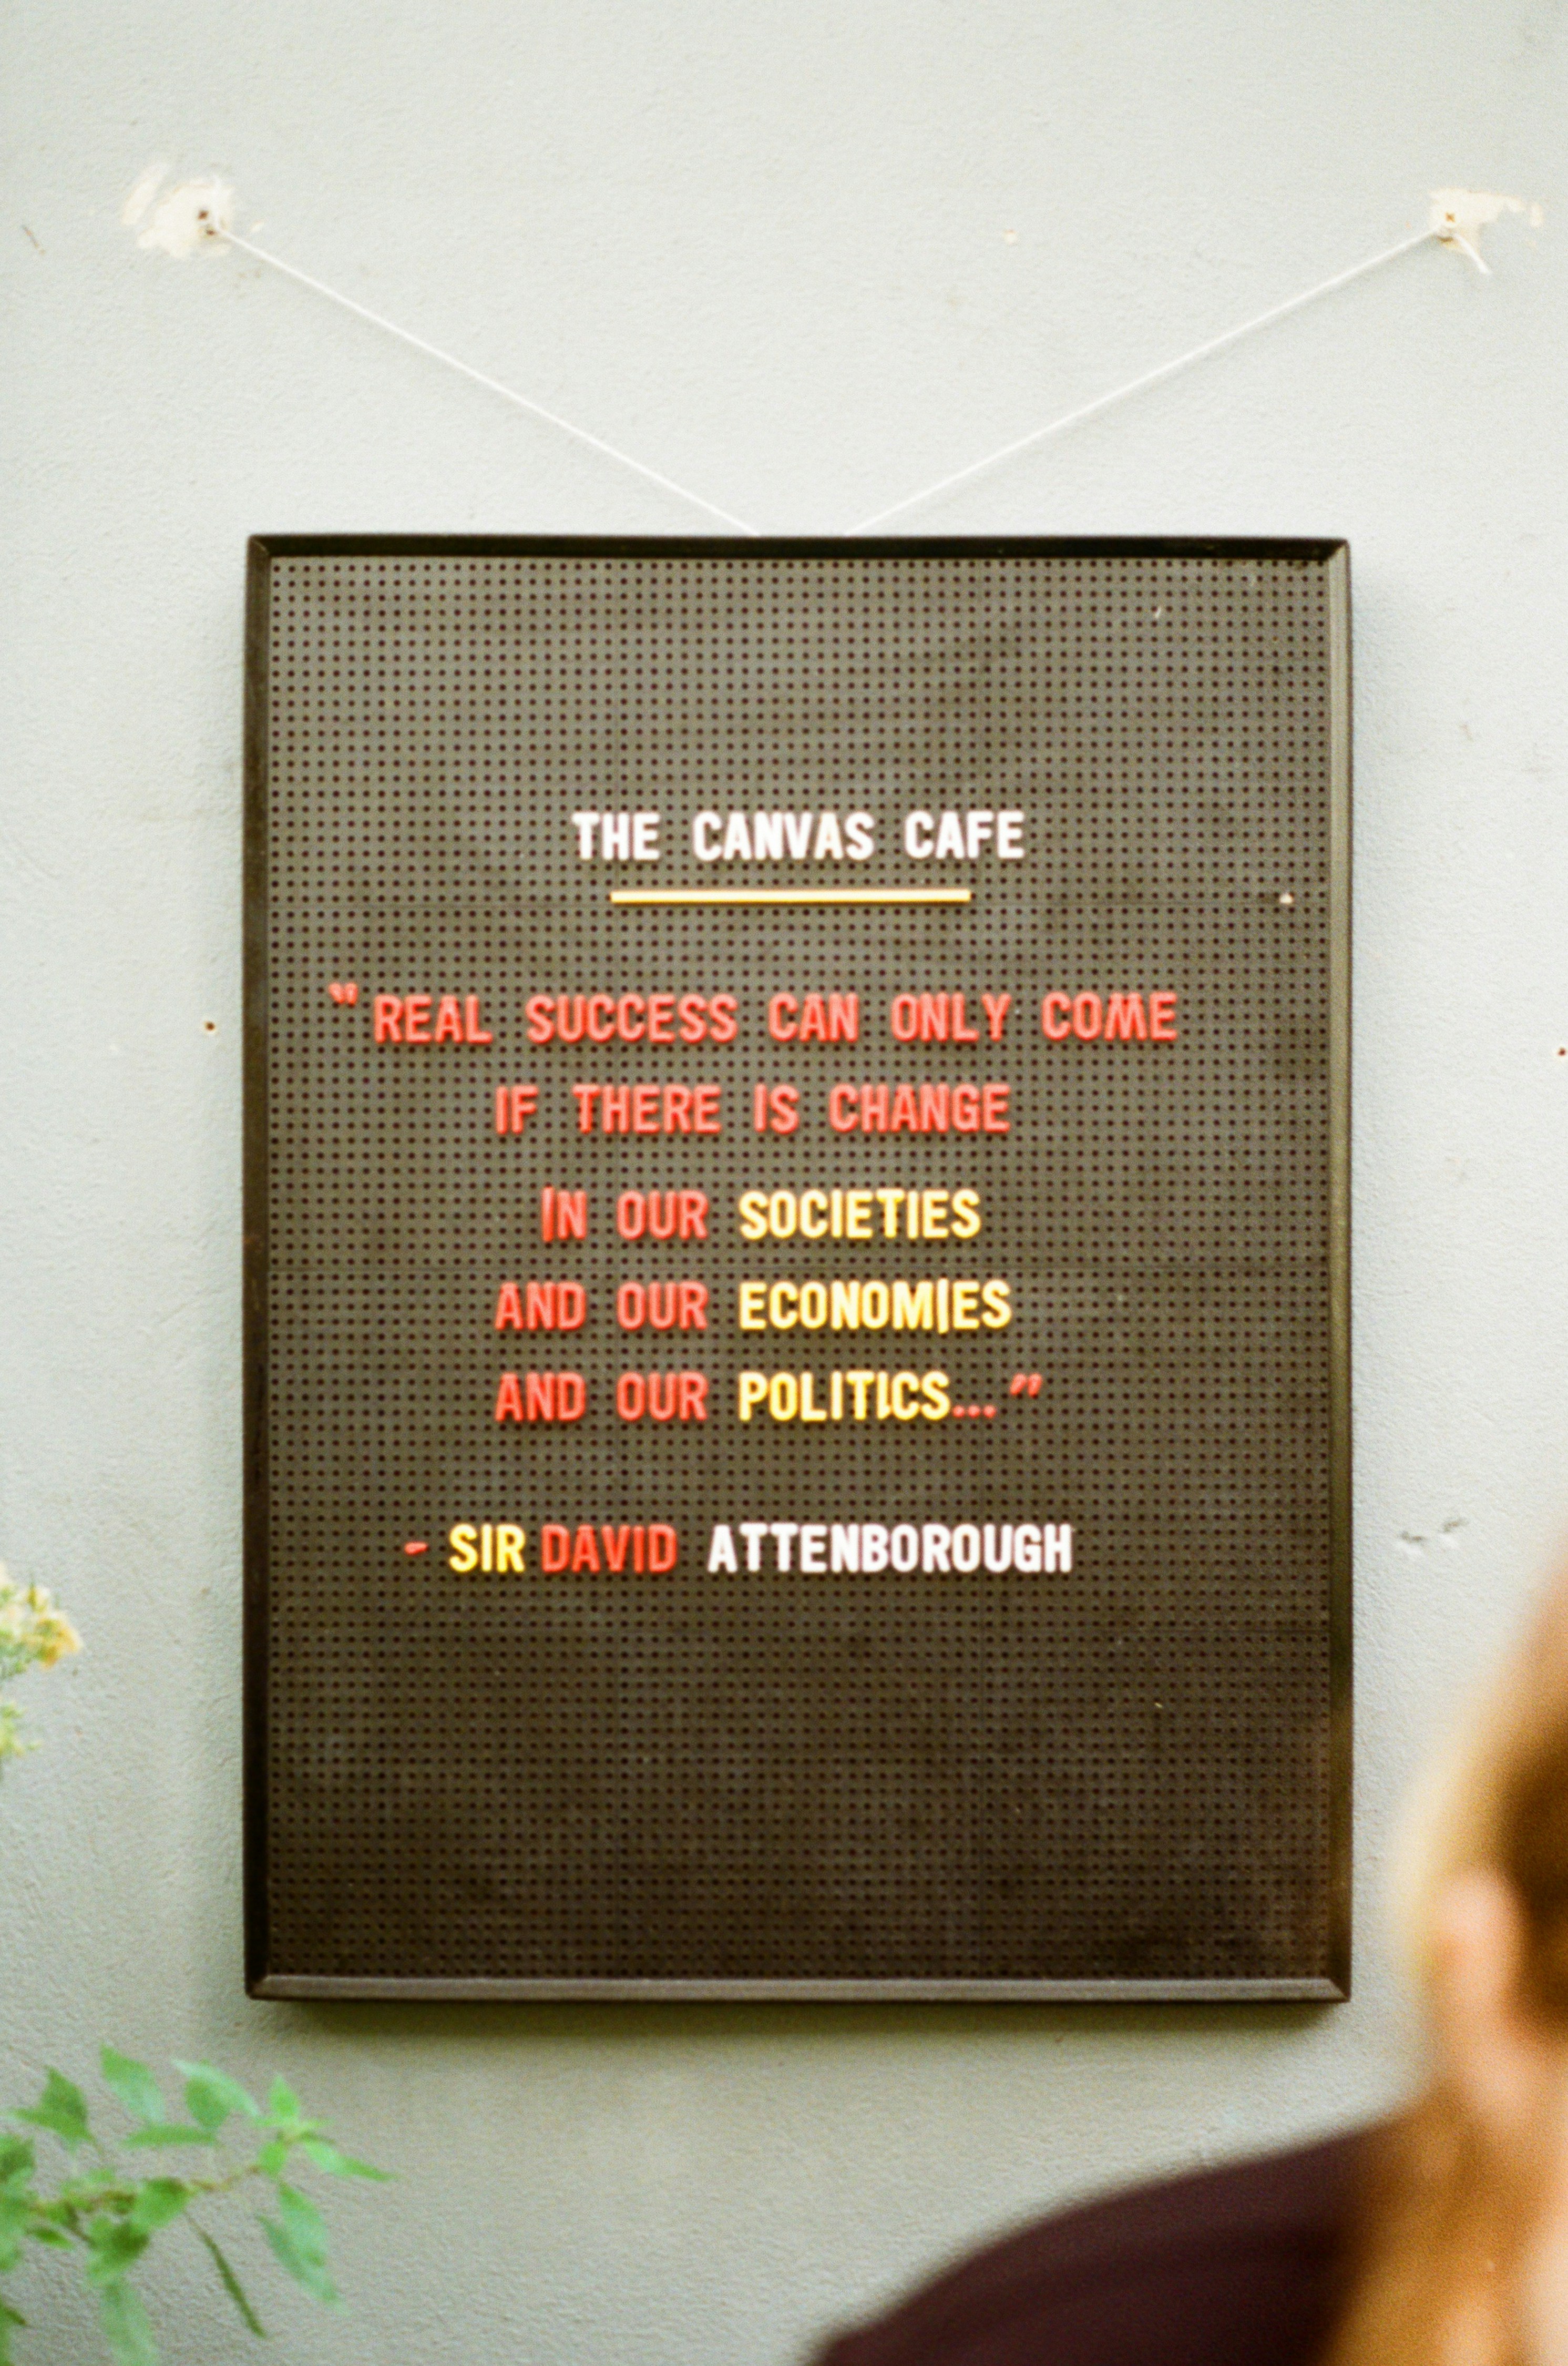 THE CANVAS CAFE
“REAL SUCCESS CAN ONLY COME
IF THERE IS CHANGE
IN OUR SOCIETIES
AND OUR ECONOMIES
AND OUR POLITICS...”
- SIR DAVID ATTENBOROUGH